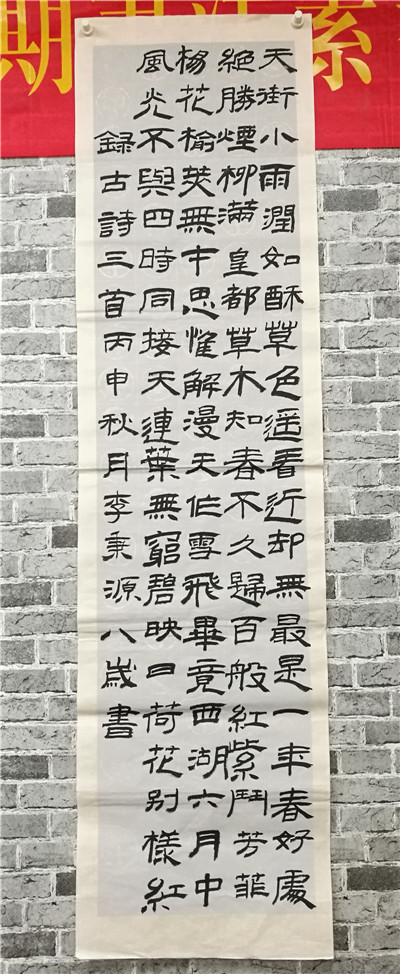 期書法素
天街小雨潤如酥草色遥看近却無最是一年春好處
絶勝煙柳滿皇都草木知春不久歸百般紅紫鬥芳菲
楊花榆莢無才思惟解漫天作雪飛畢竟西湖六月中
風光不與四時同接天連葉無窮碧映日荷花别樣紅
録古詩三首丙申秋月李秉源八歲書